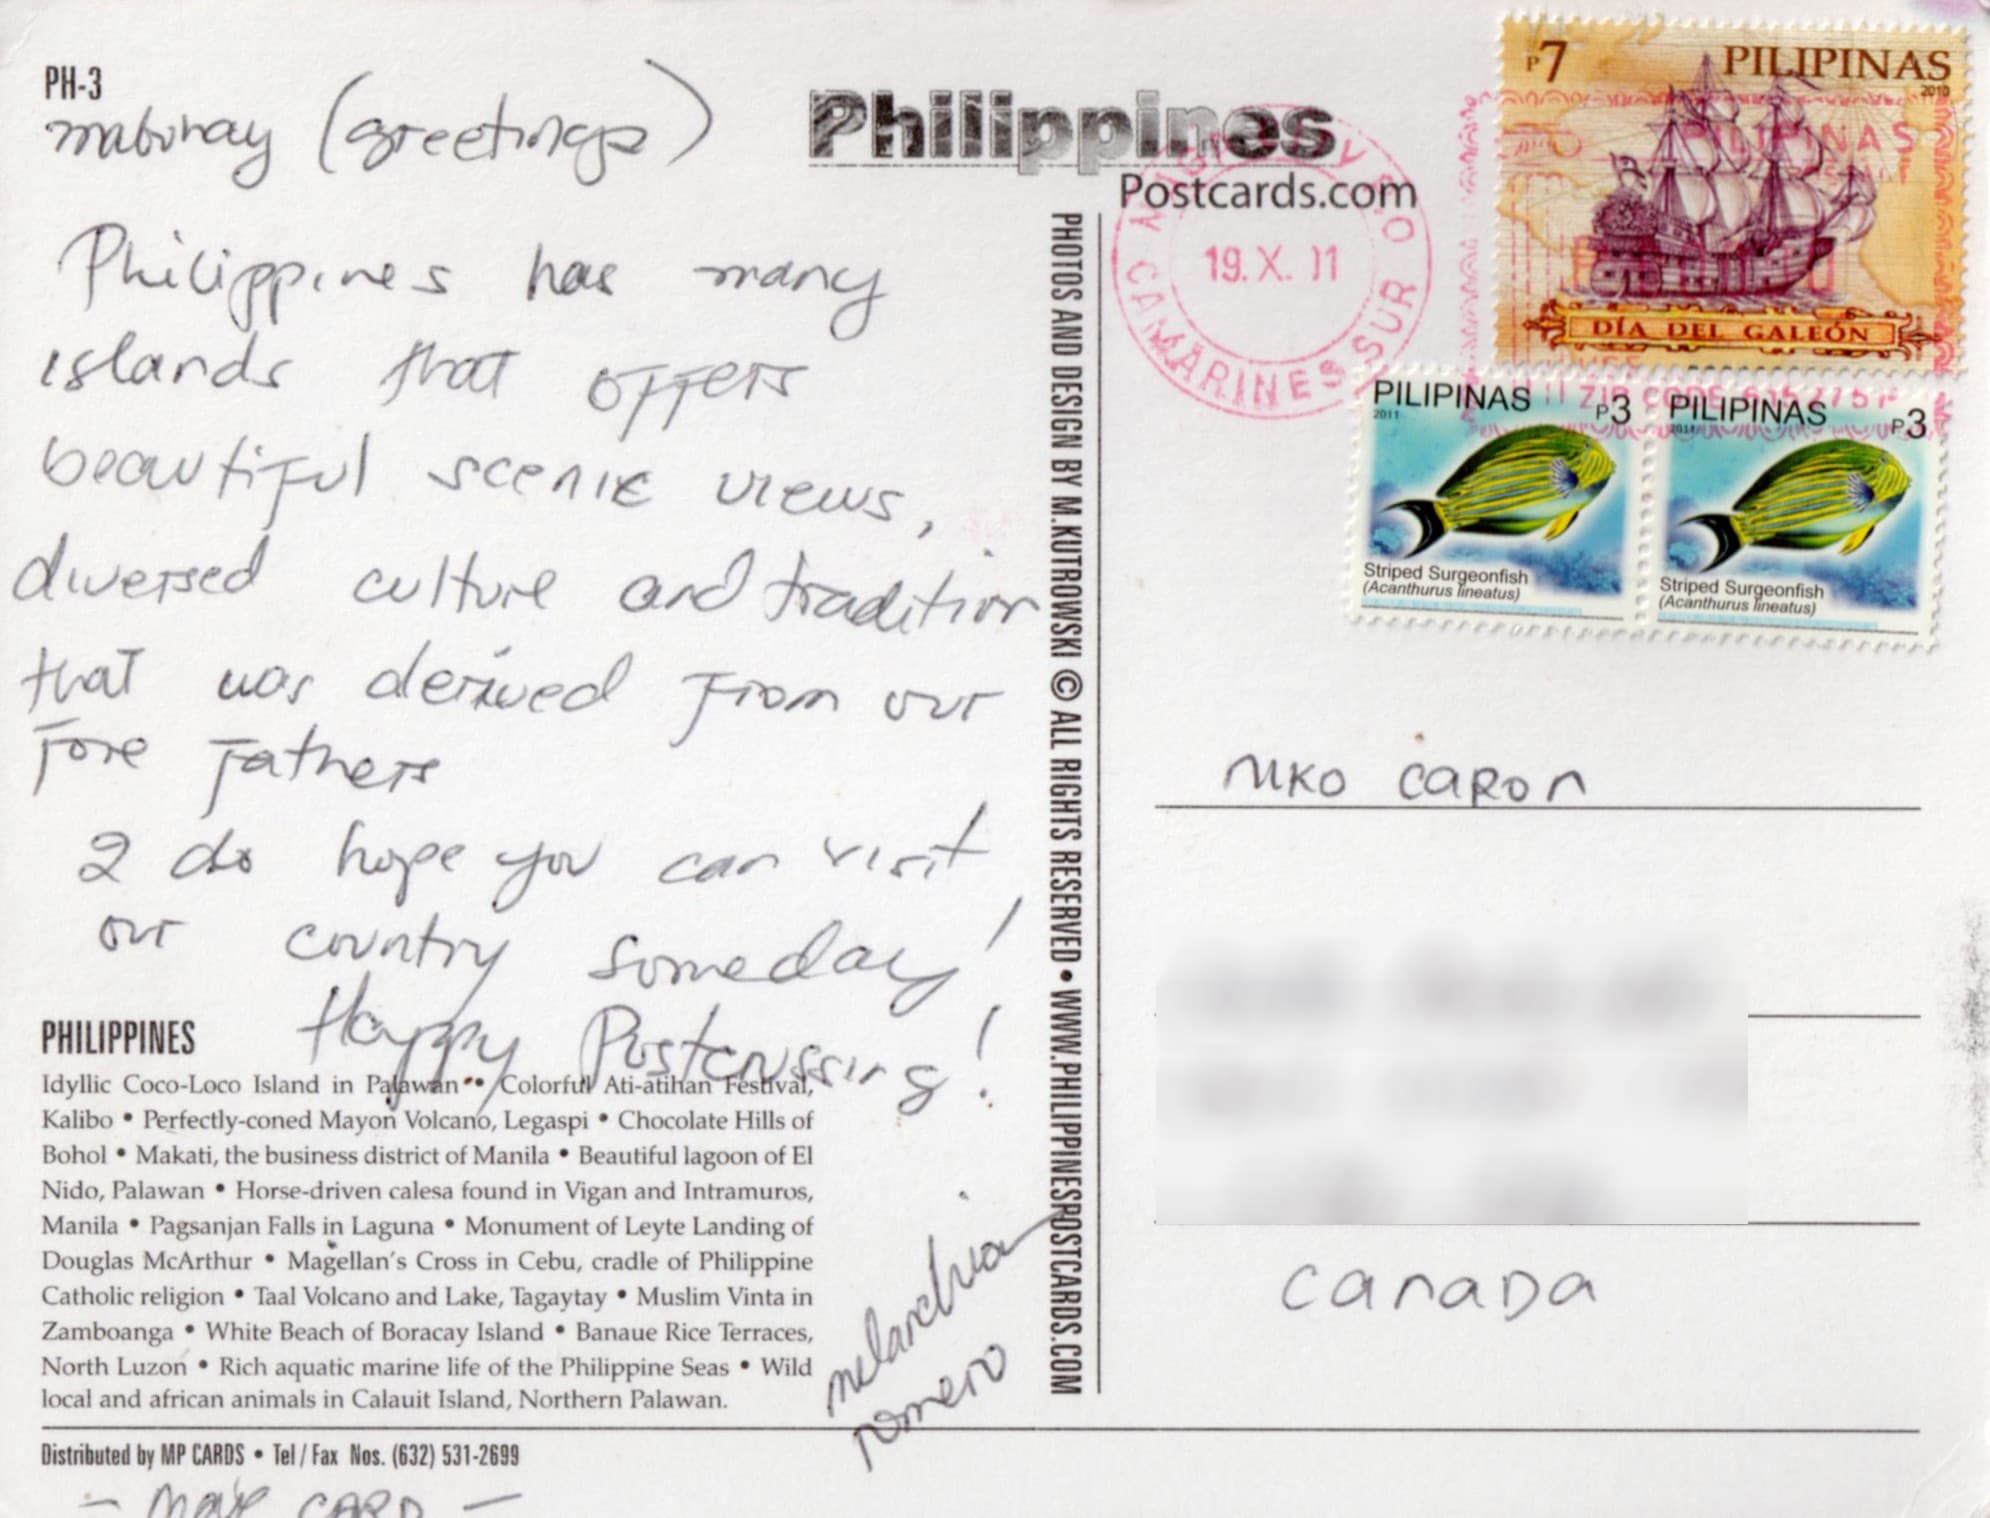 PH-3
mabuhay (greetings)
Philippines has many
islands that offers
beautiful scenic views,
diversed culture and tradition
that was derived from our
fore fathers
I do hope you can visit
our country someday!
Happy Postcrossing!
PHILIPPINES
Idyllic Coco-Loco Island in Palawan • Colorful Ati-atihan Festival,
Kalibo • Perfectly-coned Mayon Volcano, Legaspi • Chocolate Hills of
Bohol • Makati, the business district of Manila • Beautiful lagoon of El
Nido, Palawan • Horse-driven calesa found in Vigan and Intramuros,
Manila • Pagsanjan Falls in Laguna • Monument of Leyte Landing of
Douglas McArthur • Magellan's Cross in Cebu, cradle of Philippine
Catholic religion • Taal Volcano and Lake, Tagaytay • Muslim Vinta in
Zamboanga • White Beach of Boracay Island • Banaue Rice Terraces,
North Luzon • Rich aquatic marine life of the Philippine Seas • Wild
local and african animals in Calauit Island, Northern Palawan.
romero
Distributed by MP CARDS • Tel / Fax Nos. (632) 531-2699
- CARD -
Philippines
Postcards.com
PHOTOS AND DESIGN BY M.KUTROWSKI © ALL RIGHTS RESERVED • WWW.PHILIPPINESPOSTCARDS.COM
CAMARINES SUR
19. X. 11
P7 PILIPINAS
2010
DÍA DEL GALEÓN
PILIPINAS P3
2011
Striped Surgeonfish
(Acanthurus lineatus)
PILIPINAS P3
2011
Striped Surgeonfish
(Acanthurus lineatus)
ZIP CODE
CARON
CANADA